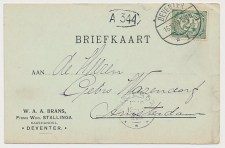 A 344
DEVENTER
BRIEFKAART
AAN
de Heeren
Gebrs. Wazendorf
Amsterdam
W. A. A. BRANS,
FIRMA WED. STALLINGA
DEVENTER.